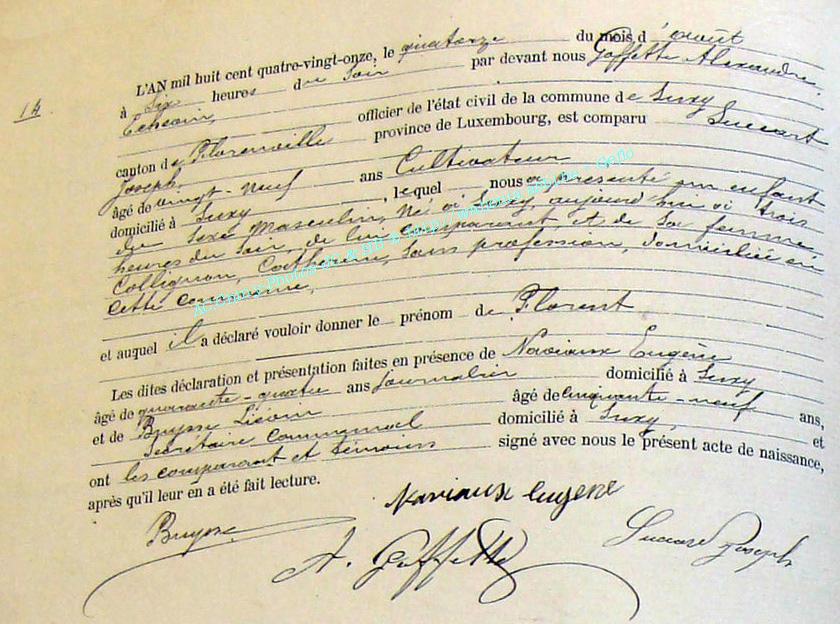 14
L'AN mil huit cent quatre-vingt-onze, le quatorze du mois d'août
à six heures du soir par devant nous Goffette Alexandre,
Echevin, officier de l'état civil de la commune de Suxy
canton de Florenville province de Luxembourg, est comparu
Joseph,
âgé de vingt-neuf ans Cultivateur
domicilié à Suxy, lequel nous a présenté un enfant
du sexe Masculin, Né à Suxy, aujourd'hui à trois
heures du soir, de lui comparant, et de sa femme,
Collignon, Catherine, sans profession, domiciliée en
cette commune,
et auquel il a déclaré vouloir donner le prénom de Florent
Les dites déclaration et présentation faites en présence de Naviaux Eugène
âgé de quarante-quatre ans journalier domicilié à Suxy
et de Buysse âgé de cinquante-neuf ans,
Secrétaire Communal domicilié à Suxy, et
ont les comparant et témoins signé avec nous le présent acte de naissance,
après qu'il leur en a été fait lecture.
Naviaux Eugene
Buysse
A. Goffette
Joseph